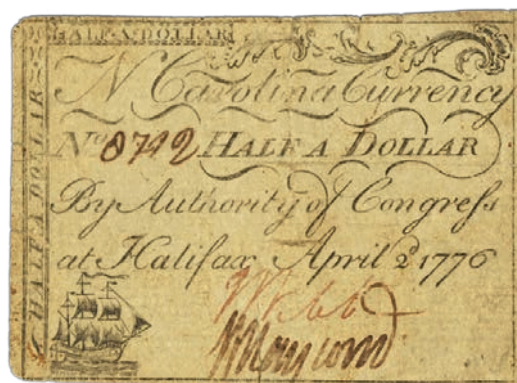 HALF·A·DOLLAR
HALF·A·DOLLAR
N Carolina Currency
No 8792 HALF A DOLLAR
By Authority of Congreſs
at Halifax April 2 1776
JWebb